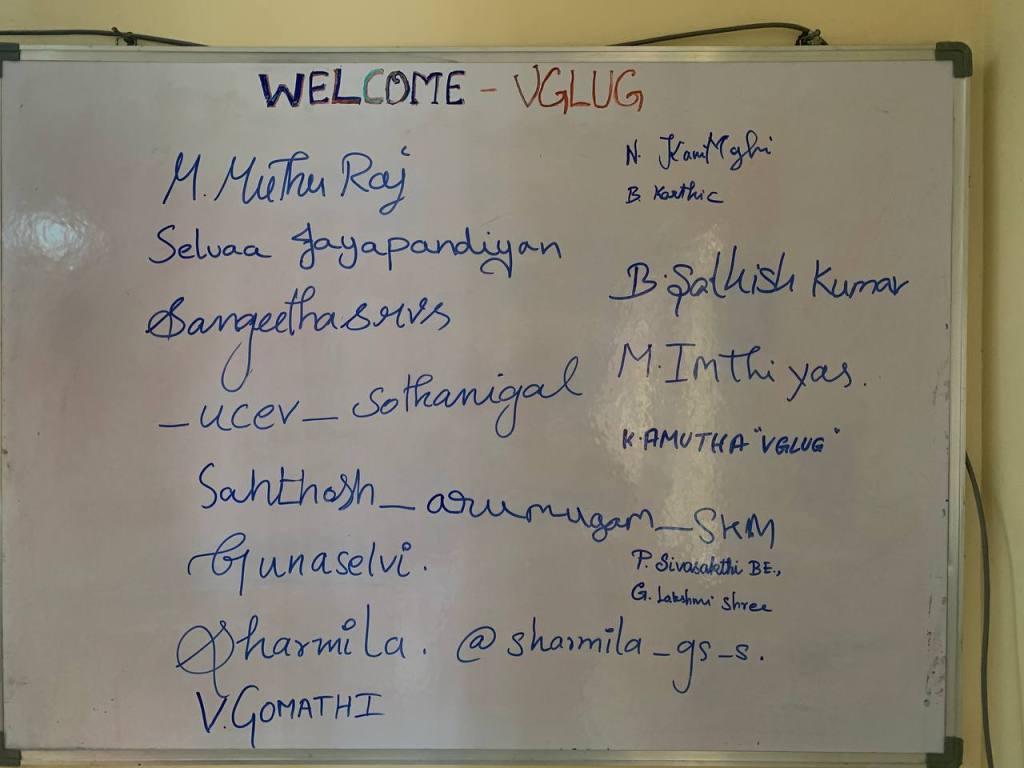 WELCOME - VGLUG
M. Muthu Raj
Selvaa Jayapandiyan
Sangeethasrvs
_ucev_sothanigal
Sahthosh_arumugam_SKM
Gunaselvi.
Sharmila. @sharmila_gs_s.
V. GOMATHI
N.
B. Karthic
B. Sathish Kumar
M. Imthiyas.
K. AMUTHA "VGLUG"
P. Sivasakthi BE.,
G. Lakshmi Shree